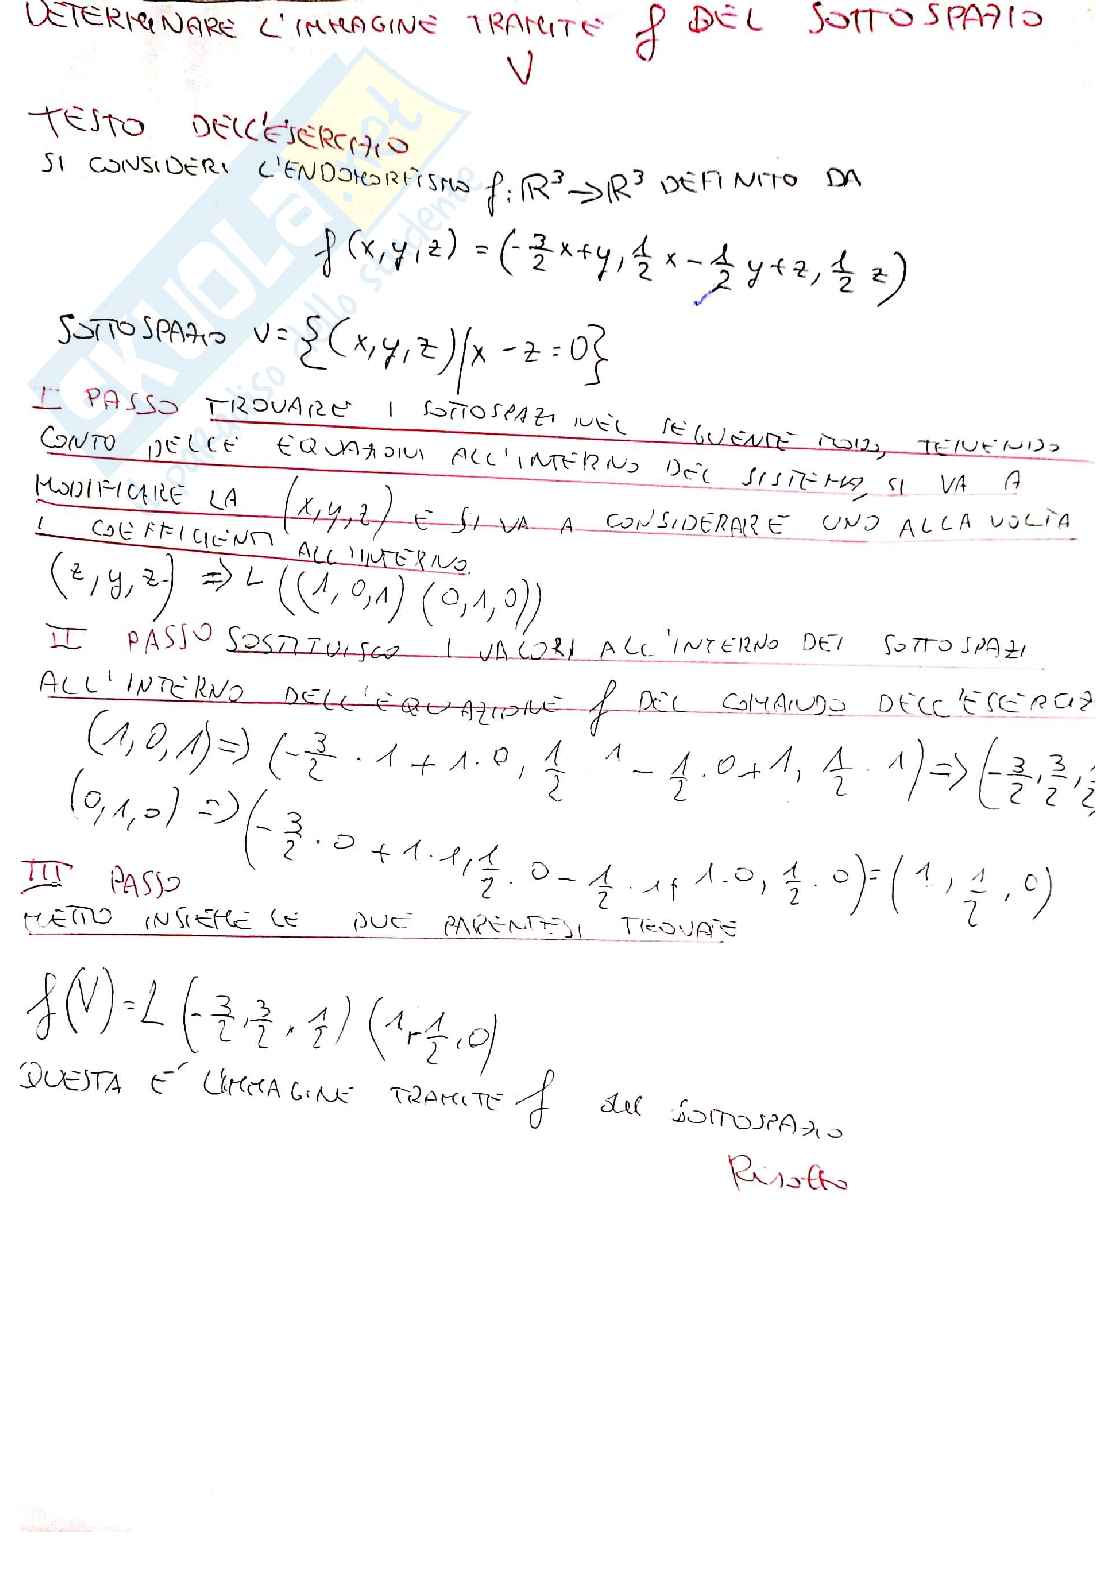 DETERMINARE L'IMMAGINE TRAMITE f DEL SOTTOSPAZIO
V
TESTO DELL'ESERCIZIO
SI CONSIDERI L'ENDOMORFISMO f: ℝ³→ℝ³ DEFINITO DA
f(x,y,z) = (-3/2 x+y, 1/2 x - 1/2 y+z, 1/2 z)
SOTTOSPAZIO V = {(x,y,z)/x - z = 0}
I PASSO TROVARE I SOTTOSPAZI NEL SEGUENTE MODO, TENENDO
CONTO DELLE EQUAZIONI ALL'INTERNO DEL SISTEMA, SI VA A
MODIFICARE LA (x,y,z) E SI VA A CONSIDERARE UNO ALLA VOLTA
I COEFFICIENTI ALL'INTERNO.
(z,y,z) => L((1,0,1)(0,1,0))
II PASSO SOSTITUISCO I VALORI ALL'INTERNO DEI SOTTOSPAZI
ALL'INTERNO DELL'EQUAZIONE f DEL COMANDO DELL'ESERCIZ
(1,0,1) => (-3/2 · 1 + 1·0, 1/2 1 - 1/2 · 0+1, 1/2 · 1) => (-3/2, 3/2, 1/2
(0,1,0) => (-3/2 · 0 + 1·1, 1/2 · 0 - 1/2 · 1+ 1·0, 1/2 · 0) = (1, 1/2, 0)
III PASSO
METTO INSIEME LE DUE PARENTESI TROVATE
f(V) = L(-3/2, 3/2, 1/2) (1, -1/2, 0)
QUESTA E' L'IMMAGINE TRAMITE f del SOTTOSPAZIO
Risolto
SKUOLA.net
paradiso dello studente